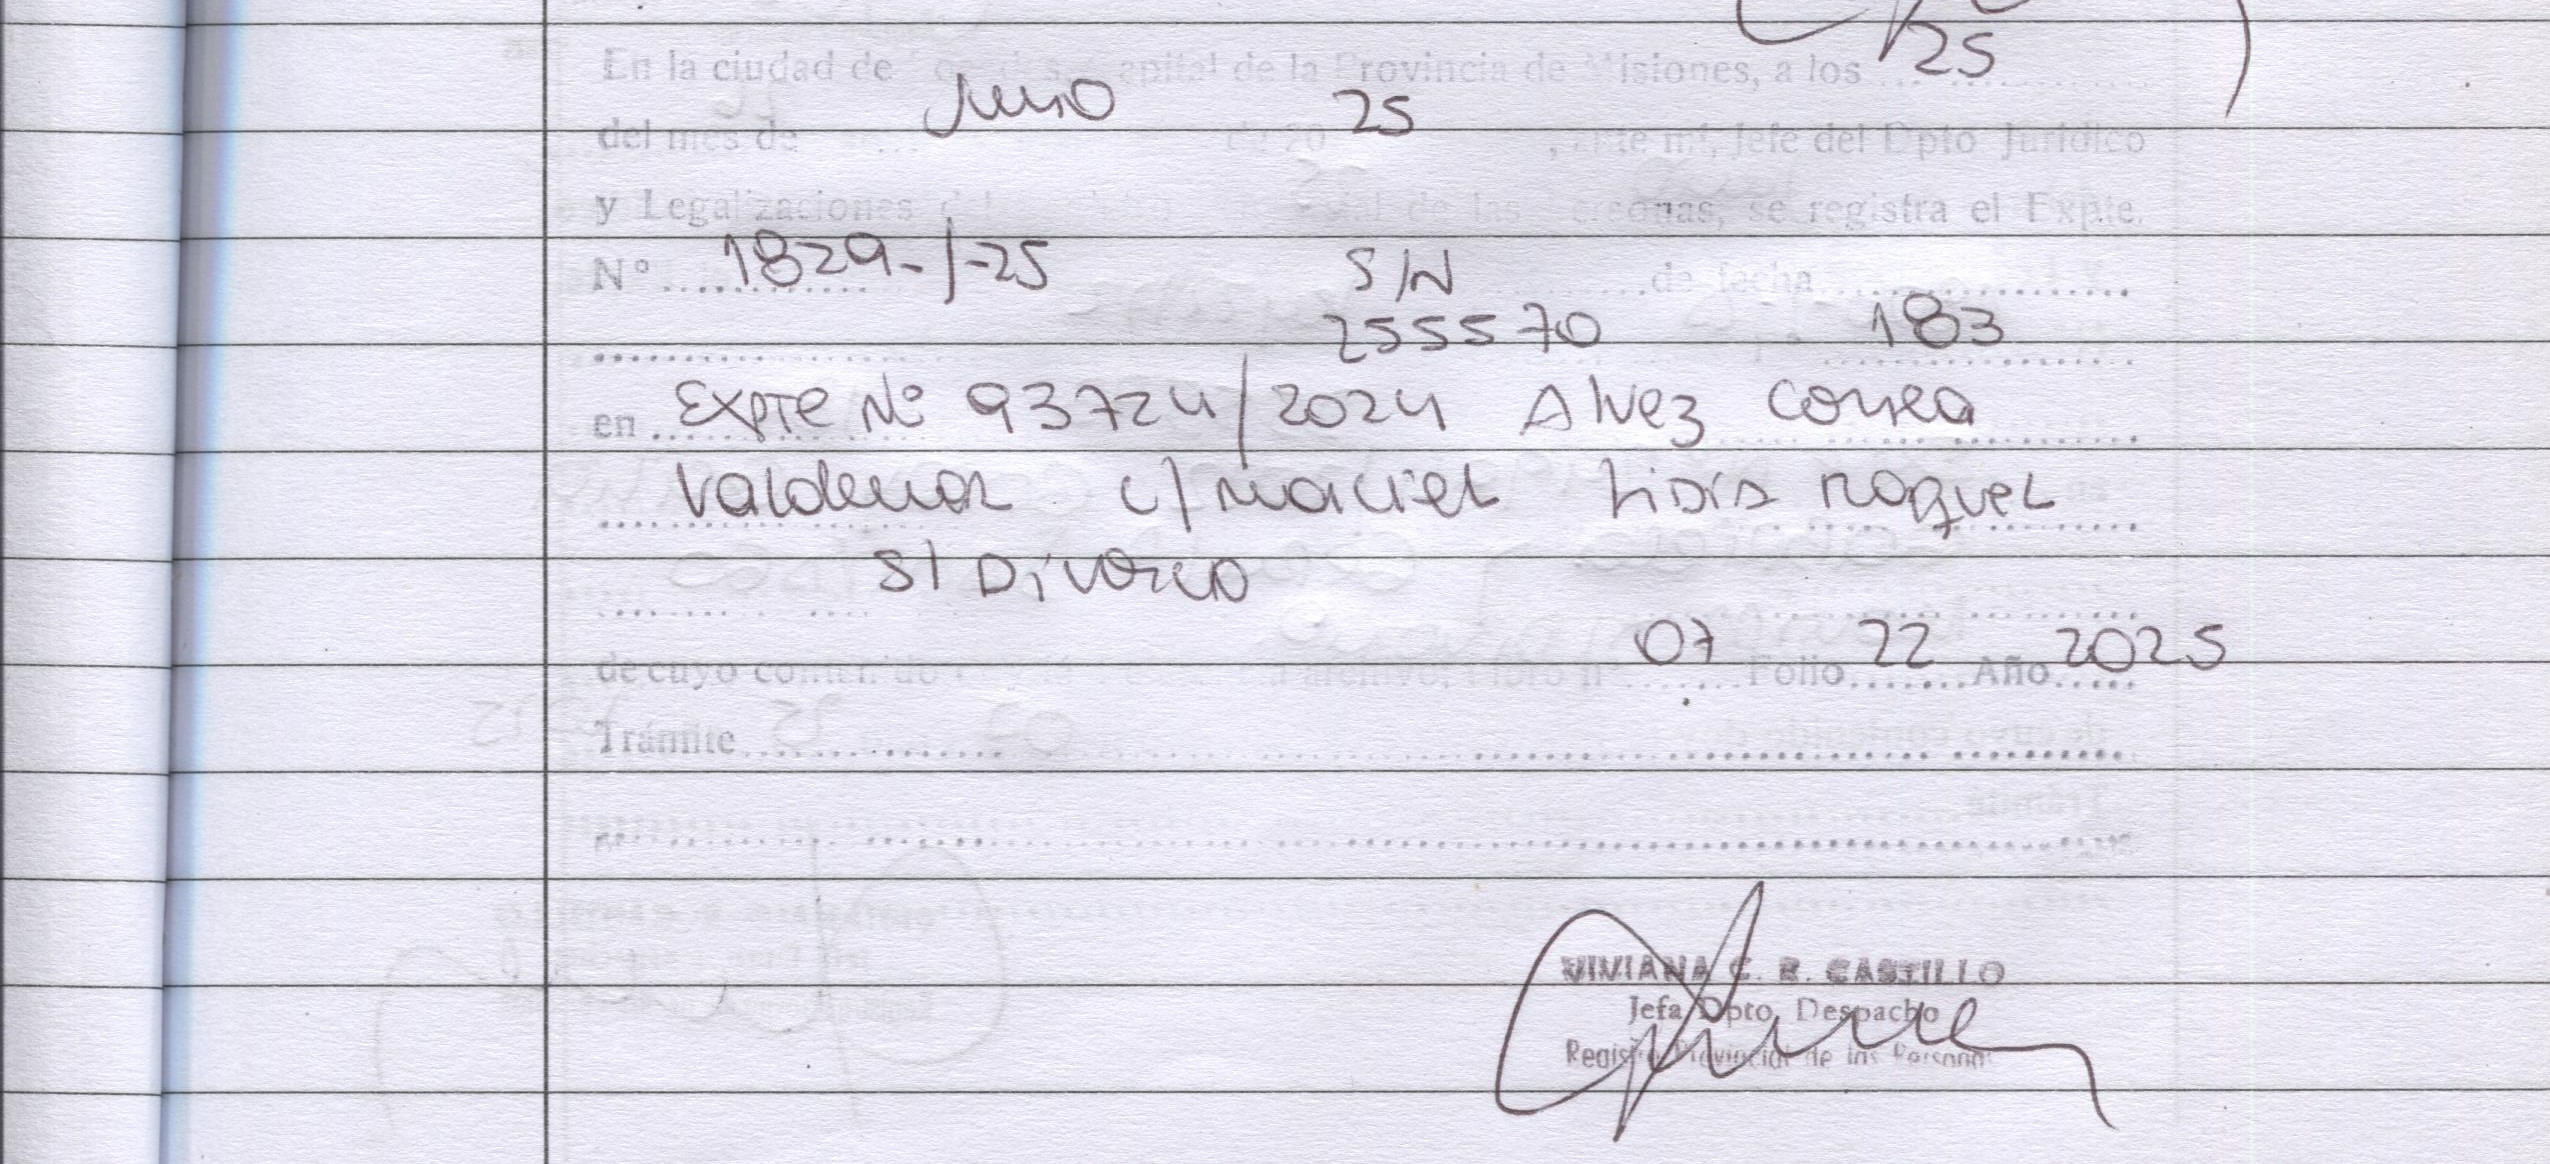 25
En la ciudad de Posadas, capital de la Provincia de Misiones, a los
Junio 25
del mes de ... de 20 , ante mí, Jefe del Dpto Jurídico
y Legalizaciones del de las Personas, se registra el Expte.
1829-J-25 S/N
N° .......... de fecha ..........
255570 183
Expte N° 93724/2024 Alvez Correa
en
Valdemar c/ Maciel Lisis Raquel
S/ Divorcio
07 22 2025
de cuyo contenido archivo, Libro n° ....... Folio ....... Año .....
Trámite ..........
VIVIANA C. R. CASTILLO
Jefa Dpto. Despacho
Registro Provincial de las Personas